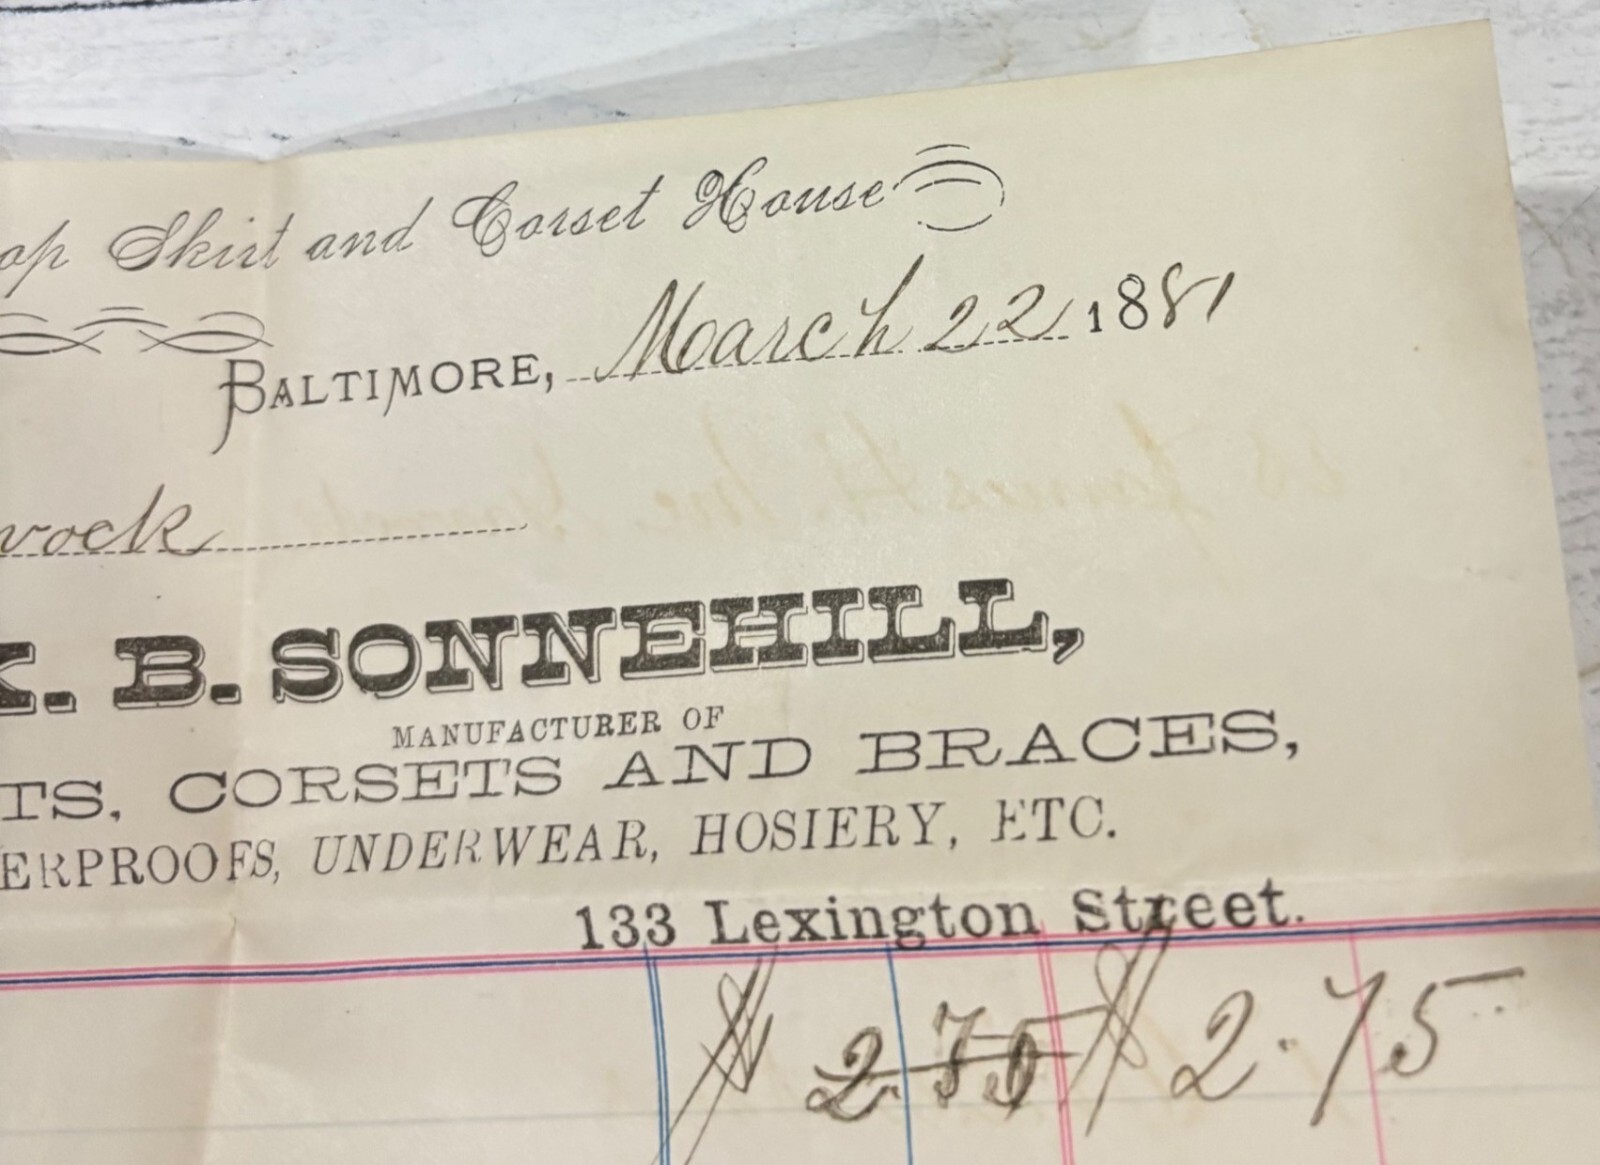 op Skirt and Corset House
BALTIMORE, March 22 1881
vock
K. B. SONNEHILL,
MANUFACTURER OF
TS, CORSETS AND BRACES,
ERPROOFS, UNDERWEAR, HOSIERY, ETC.
133 Lexington Street.
$ 2.75 $ 2.75